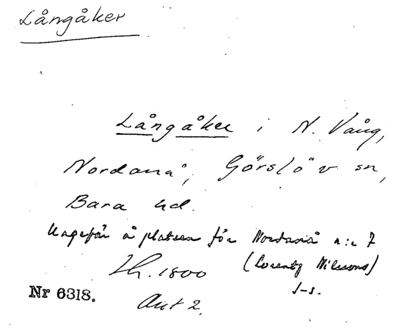 Långåker
Långåker i N. Vång,
Nordanå, Görslöv sn,
Bara hd.
å platsen för Nordanå n:r 7
(Lorentz Nilssons)
1800
Nr 6318.
Ant 2.